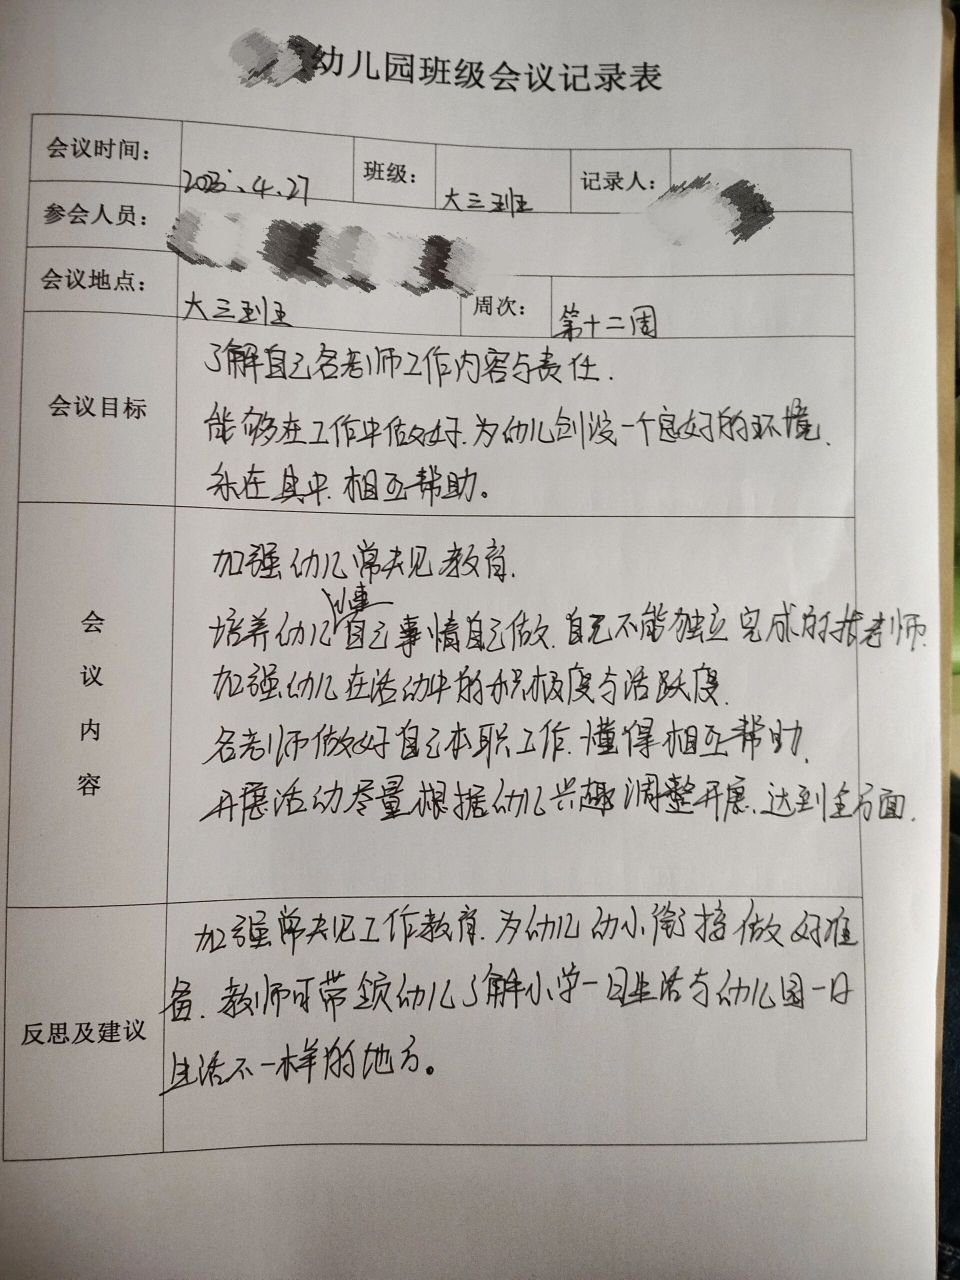 幼儿园班级会议记录表
会议时间： 4.27 班级： 大三班 记录人：
参会人员：
会议地点： 大三班 周次： 第十二周
会议目标
了解自己各老师工作内容与责任.
能够在工作中做好.为幼儿创设一个良好的环境.
乐在其中.相互帮助。
会议内容
加强幼儿常规教育.
培养幼儿自己事情自己做.自己不能独立完成的找老师.
加强幼儿在活动中的积极度与活跃度.
各老师做好自己本职工作.懂得相互帮助.
开展活动尽量根据幼儿兴趣调整开展.达到全方面.
反思及建议
加强常规工作教育.为幼儿幼小衔接做好准
备.教师可带领幼儿了解小学一日生活与幼儿园一日
生活不一样的地方。